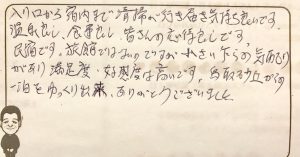 入り口から館内まで清掃が行き届き気持ち良いです。
温泉良し、食事良し、皆さんの感じ良しです。
民宿です、旅館ではないのですが、小さい下らの気配り
があり満足度・好感度は高いです。鳥取砂丘からの
一泊をゆっくり出来、ありがとうございました